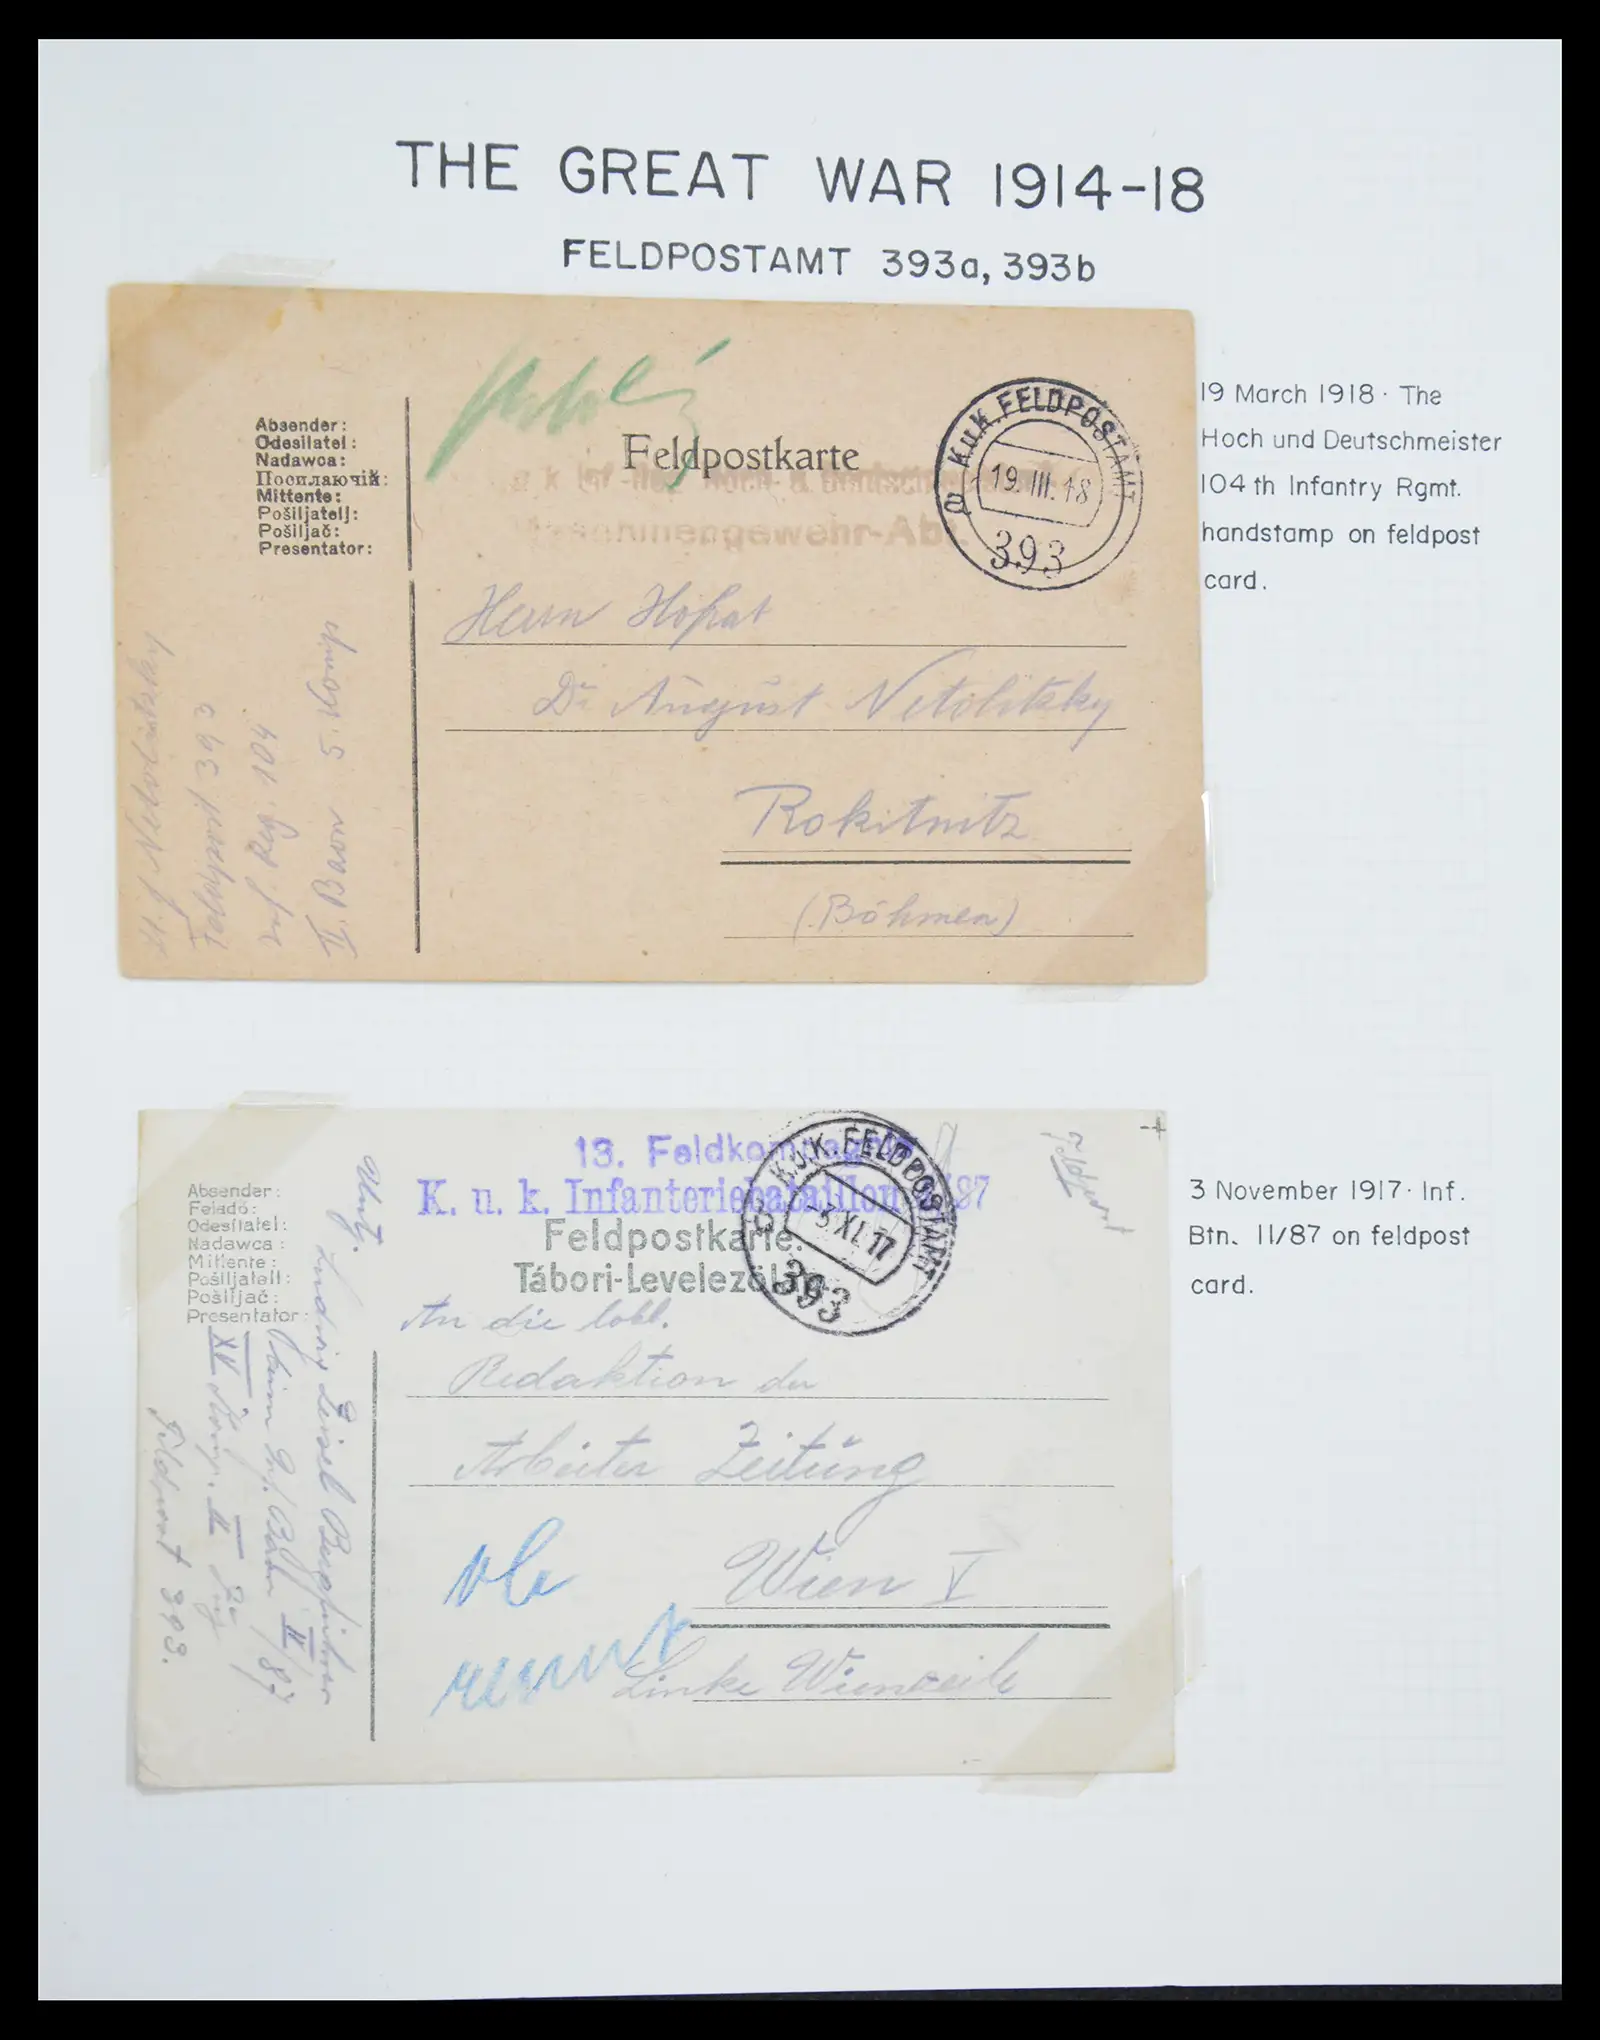 THE GREAT WAR 1914-18
FELDPOSTAMT 393a, 393b
Absender:
Odesilatel:
Nadawca:
Посилаючій:
Mittente:
Pošiljatelj:
Pošiljač:
Presentator:
Feldpostkarte
Maschinengewehr-Abt.
K.u.K. FELDPOSTAMT a
19. III. 18
393
Herrn Hofrat
Dr August Netolitzky
Rokitnitz
(Böhmen)
Netolitzky
Feldpost 393 a
104
II. Baon 5. Komp
19 March 1918 · The
Hoch und Deutschmeister
104 th Infantry Rgmt.
handstamp on feldpost
card.
13. Feldkompagnie
K. u. k. Infanteriebataillon II/87
Feldpostkarte.
Tábori-Levelezőlap
K.u.K. FELDPOSTAMT
-3. XI. 17
393
Absender:
Feladó:
Odesilatel:
Nadawca:
Mittente:
Pošiljatelj:
Pošiljač:
Presentator:
An die löbl.
Redaktion der
Arbeiter Zeitung
Wien V
Linke Wienzeile
Ludwig
Inf. Baon II/87
Feldpost 393.
Feldpost
3 November 1917 · Inf.
Btn. 11/87 on feldpost
card.